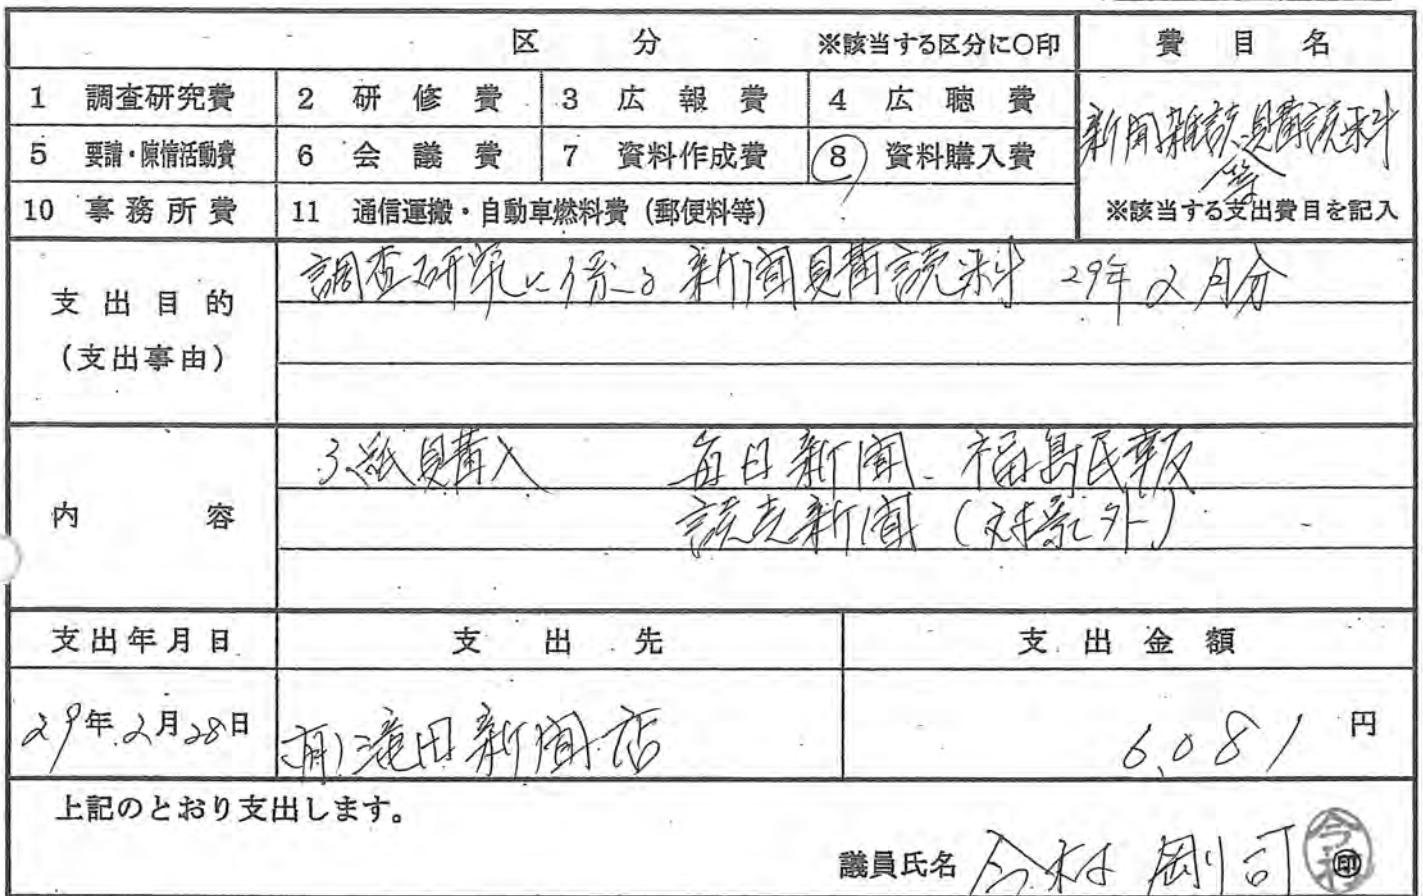 区 分 ※該当する区分に○印 費目名
1 調査研究費 2 研修費 3 広報費 4 広聴費
新聞雑誌購読料
5 要請・陳情活動費 6 会議費 7 資料作成費 8 資料購入費
等
10 事務所費 11 通信運搬・自動車燃料費(郵便料等) ※該当する支出費目を記入
調査研究に係る新聞購読料 29年2月分
支出目的
(支出事由)
3紙購入 毎日新聞、福島民報
内容 読売新聞(対象外)
支出年月日 支出先 支出金額
29年2月28日 (有)滝田新聞店 6,081円
上記のとおり支出します。
議員氏名 今村剛司 ㊞
今村